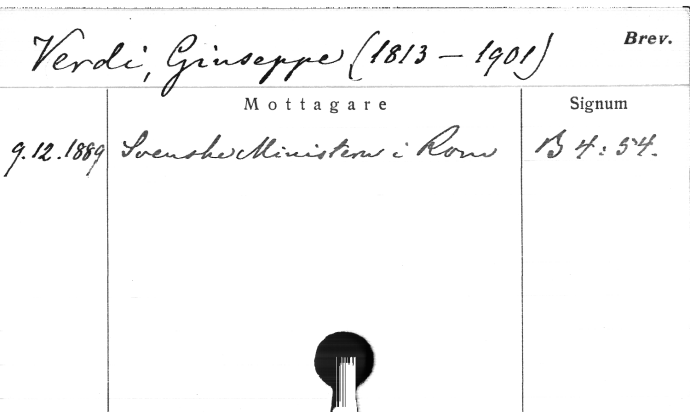 Verdi, Giuseppe (1813 – 1901) Brev.
Mottagare Signum
9.12.1889 Svenske Ministern i Rom B 4: 54.